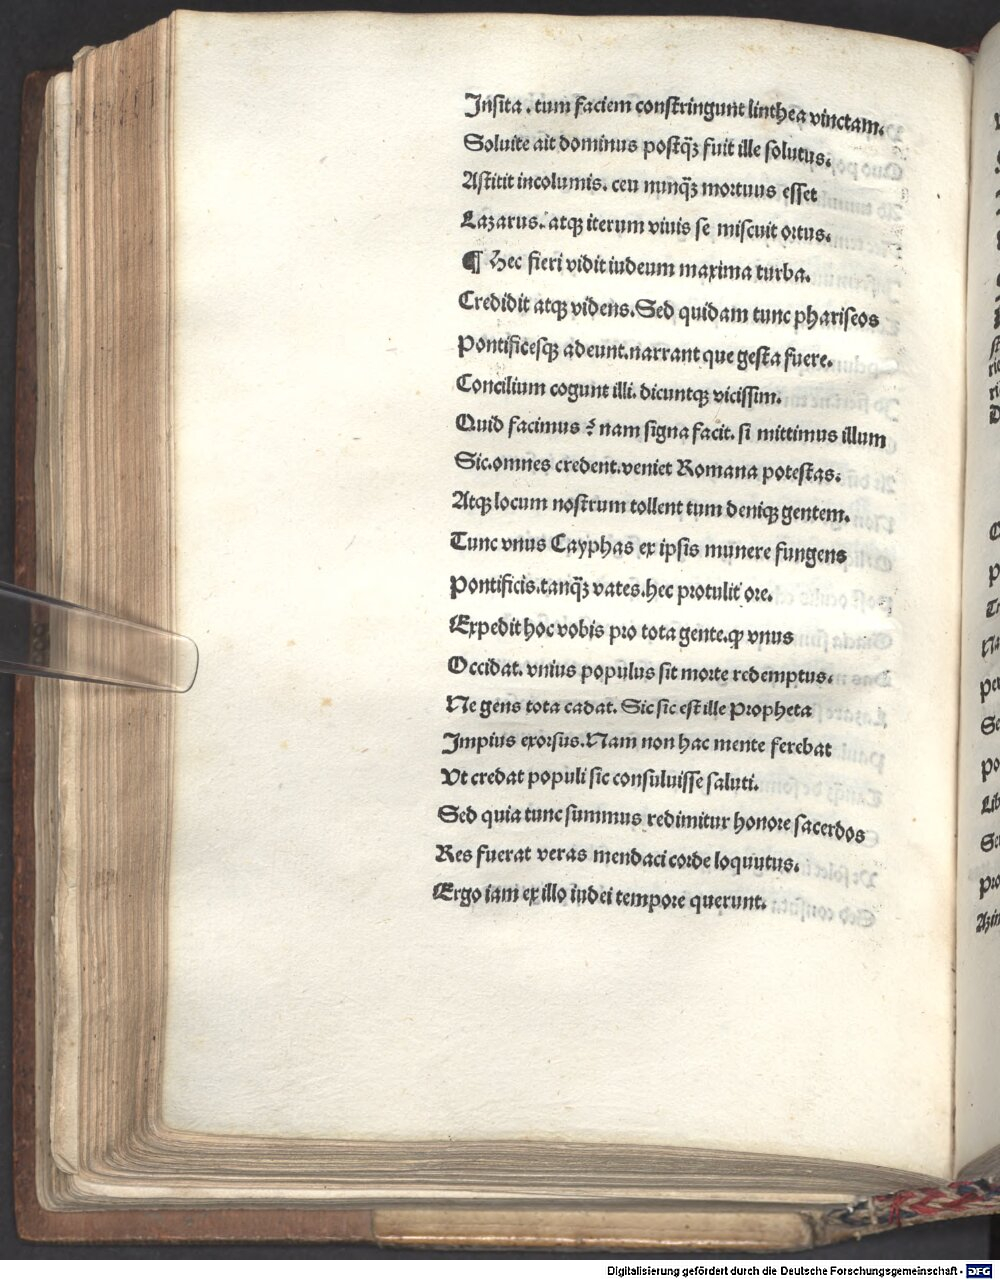 Insita. tum faciem constringunt linthea vinctam.
Soluite ait dominus postqꝫ fuit ille solutus.
Astitit incolumis. ceu nunqꝫ mortuus esset
Lazarus. atqꝫ iterum viuis se miscuit ortus.
¶ Hec fieri vidit iudeum maxima turba.
Credidit atqꝫ videns. Sed quidam tunc phariseos
Pontificesqꝫ adeunt. narrant que gesta fuere.
Concilium cogunt illi. dicuntqꝫ vicissim.
Quid facimus? nam signa facit. si mittimus illum
Sic. omnes credent. veniet Romana potestas.
Atqꝫ locum nostrum tollent tum deniqꝫ gentem.
Tunc vnus Cayphas ex ipsis munere fungens
Pontificis. tanqꝫ vates. hec protulit ore.
Expedit hoc vobis pro tota gente. ꝙ vnus
Occidat. vnius populus sit morte redemptus.
Ne gens tota cadat. Sic sic est ille Propheta
Impius exorsus. Nam non hac mente ferebat
Vt credat populi sic consuluisse saluti.
Sed quia tunc summus redimitur honore sacerdos
Res fuerat veras mendaci corde loquutus.
Ergo iam ex illo iudei tempore querunt.
Digitalisierung gefördert durch die Deutsche Forschungsgemeinschaft - DFG